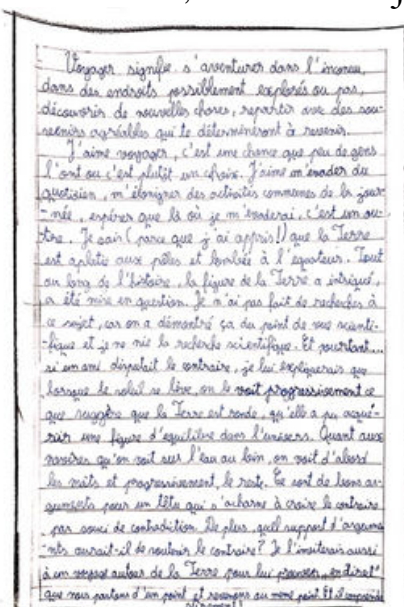 Voyager signifie s'aventurer dans l'inconnu,
dans des endroits possiblement explorés ou pas,
découvrir de nouvelles choses, repartir avec des sou-
venirs agréables qui te détermineront à revenir.
J'aime voyager, c'est une chance que peu de gens
l'ont ou c'est plutôt un choix. J'aime m'évader du
quotidien, m'éloigner des activités communes de la jour-
-née, espérer que là où je m'évaderai, c'est un au-
tre. Je sais (parce que j'ai appris!) que la Terre
est aplatie aux pôles et bombée à l'équateur. Tout
au long de l'histoire, la figure de la Terre a intrigué,
a été mise en question. Je n'ai pas fait de recherches à
ce sujet, car on a démontré ça du point de vue scienti-
-fique et je ne nie la recherche scientifique. Et pourtant...
si un ami disputait le contraire, je lui expliquerais que
lorsque le soleil se lève, on le voit progressivement ce
que suggère que la Terre est ronde, qu'elle a pu acqué-
rir une figure d'équilibre dans l'univers. Quant aux
navires qu'on voit sur l'eau au loin, on voit d'abord
les mâts et progressivement, le reste. Ce sont de bons ar-
guments pour un têtu qui s'acharne à croire le contraire
par souci de contradiction. De plus, quel support d'argume
-nts aurait-il de soutenir le contraire? Je l'inviterais aussi
à un voyage autour de la Terre pour lui prouver "en direct"
que nous partons d'un point et revenons au même point. Et il